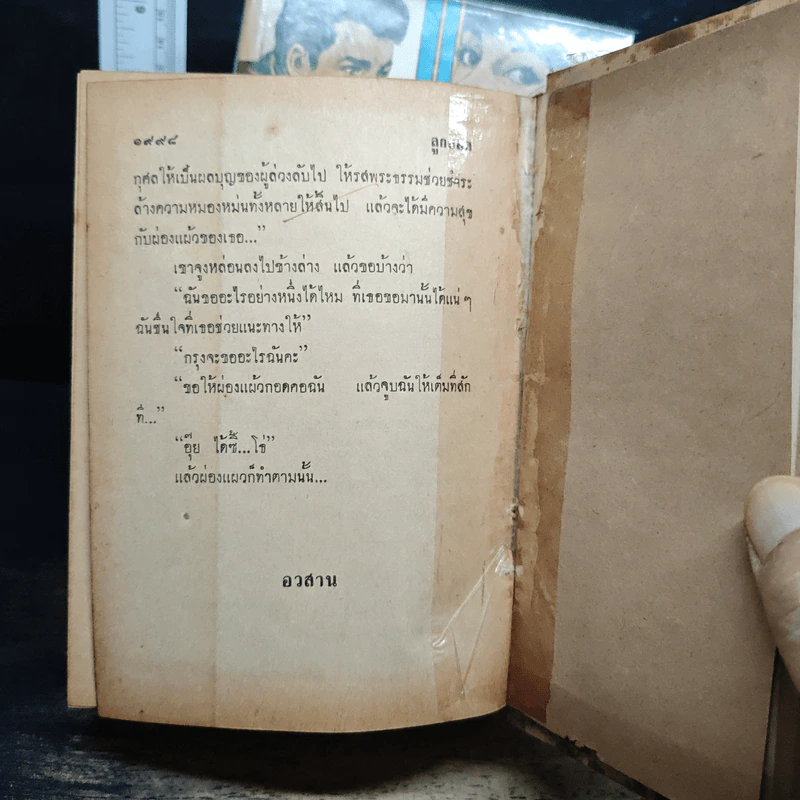 ๑๙๙๘
กุศลให้เป็นผลบุญของผู้ล่วงลับไป ให้รสพระธรรมช่วยชำระ
ล้างความหมองหม่นทั้งหลายให้สิ้นไป แล้วจะได้มีความสุข
กับผ่องแผ้วของเธอ...”
เขาจูงหล่อนลงไปข้างล่าง แล้วขอบ้างว่า
“ฉันขออะไรอย่างหนึ่งได้ไหม ที่เธอขอมานั้นได้แน่ๆ
ฉันชื่นใจที่เธอช่วยแนะทางให้”
“กรุงจะขออะไรฉันคะ”
“ขอให้ผ่องแผ้วกอดคอฉัน แล้วจูบฉันให้เต็มที่สัก
ที...”
“อุ๊ย ได้ซี้...โข่”
แล้วผ่องแผวก็ทำตามนั้น...
อวสาน